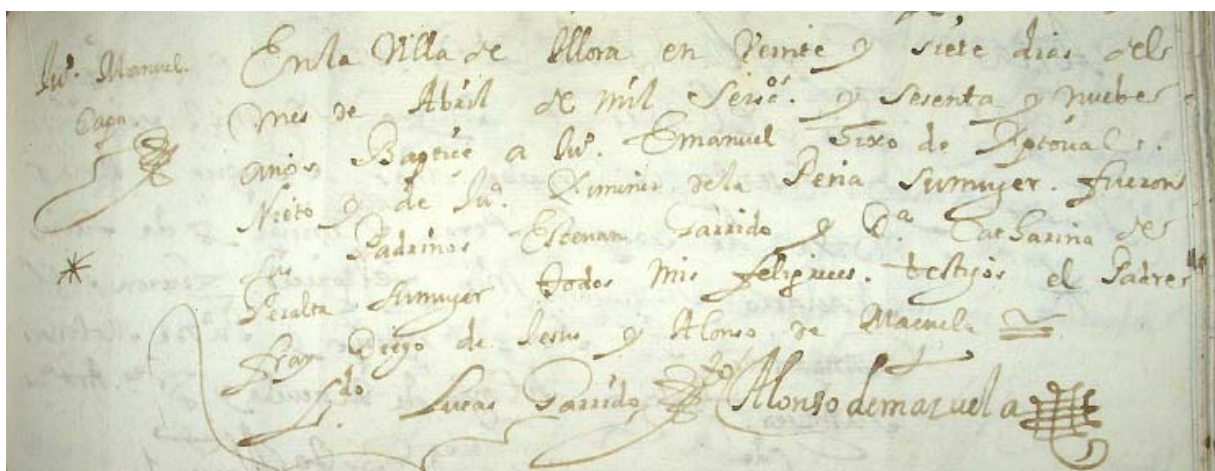 Ju°. Manuel.
En la Villa de Illora en Veinte y siete dias del
mes de Abril de mil seisos. y sesenta y nuebe
años Baptice a Ju°. Emanuel Hixo de Xptoval
Nieto y de Jua. Ximinez de la Peña su muger. fueron
sus Padrinos Estevan Garrido y Da. Catharina de
Peralta su muger todos mis feligreses. testigos el Padre
fray Diego de Jesus y Alonso de Maçuela
Ldo. Lucas Garrido Alonso demazuela